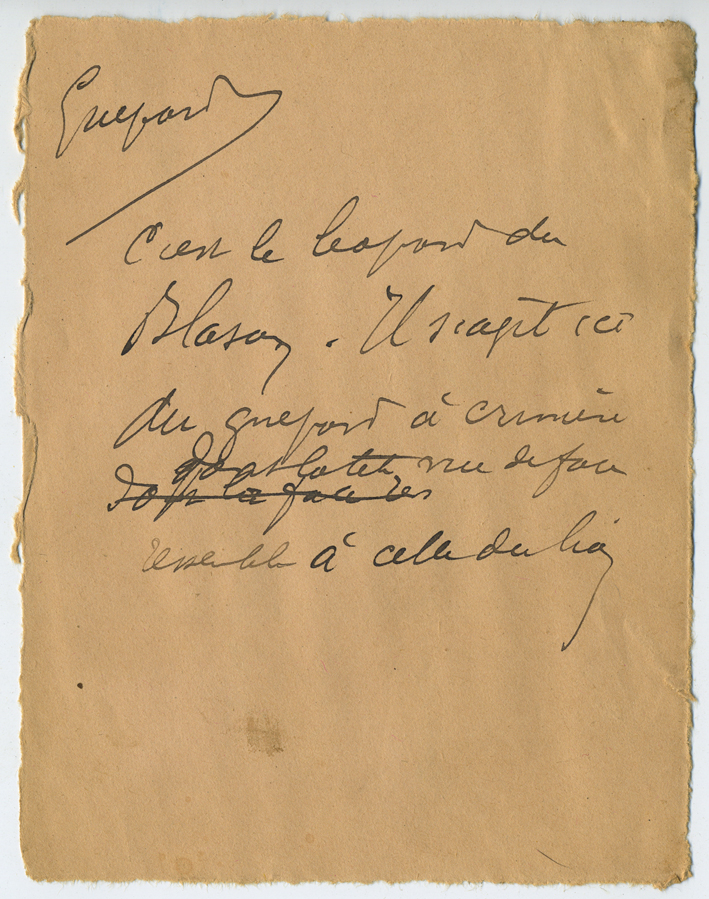 Guepard
C'est le leopard du
Blason. Il s'agit ici
du guepard à crinière
dont la tete vue de face
dont la face res
ressemble à celle du lion